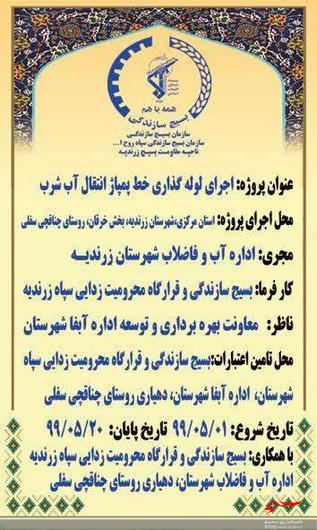 همه با هم
بسیج سازندگی
سازمان بسیج سازندگی
سازمان بسیج سازندگی سپاه روح ا...
ناحیه مقاومت بسیج زرندیه
عنوان پروژه: اجرای لوله گذاری خط پمپاژ انتقال آب شرب
محل اجرای پروژه: استان مرکزی،شهرستان زرندیه، بخش خرقان، روستای چناقچی سفلی
مجری: اداره آب و فاضلاب شهرستان زرندیـــه
کار فرما: بسیج سازندگی و قرارگاه محرومیت زدایی سپاه زرندیه
ناظر: معاونت بهره برداری و توسعه اداره آبفا شهرستان
محل تامین اعتبارات:بسیج سازندگی و قرارگاه محرومیت زدایی سپاه
شهرستان، اداره آبفا شهرستان، دهیاری روستای چناقچی سفلی
تاریخ شروع: ۹۹/۰۵/۰۱ تاریخ پایان: ۹۹/۰۵/۲۰
با همکاری: بسیج سازندگی و قرارگاه محرومیت زدایی سپاه زرندیه
اداره آب و فاضلاب شهرستان، دهیاری روستای چناقچی سفلی